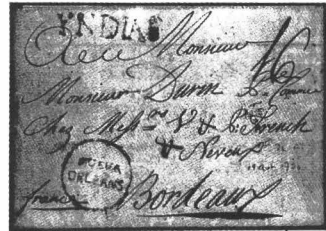 YNDIAS
A Monsieur 16
Monsieur
Chez Mess.rs V & P. French
& Neveu
NUEVA
ORLEANS
france Bordeaux